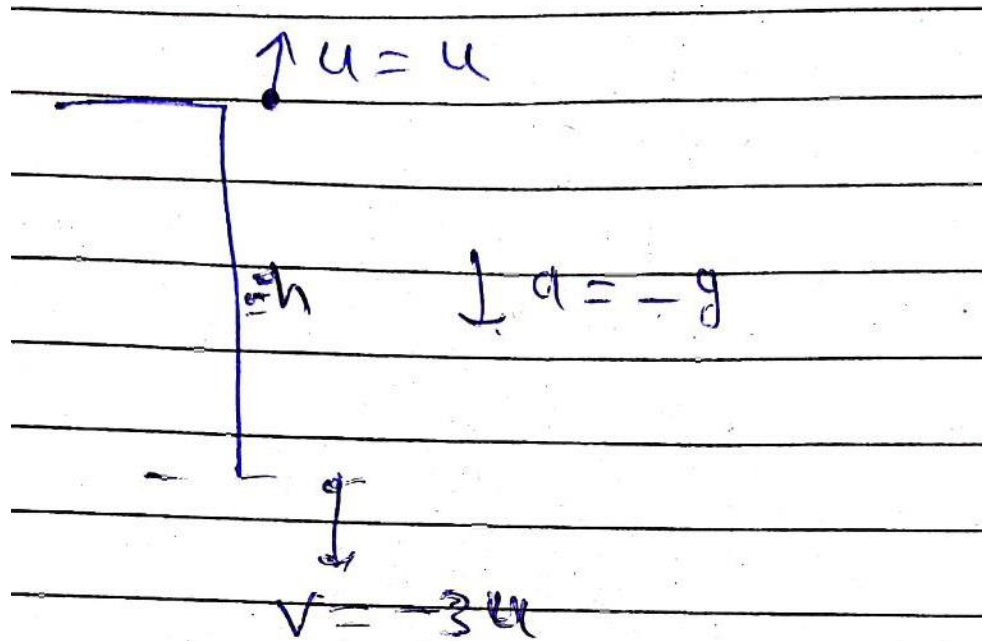 u = u
h
a = - g
V = - 3u